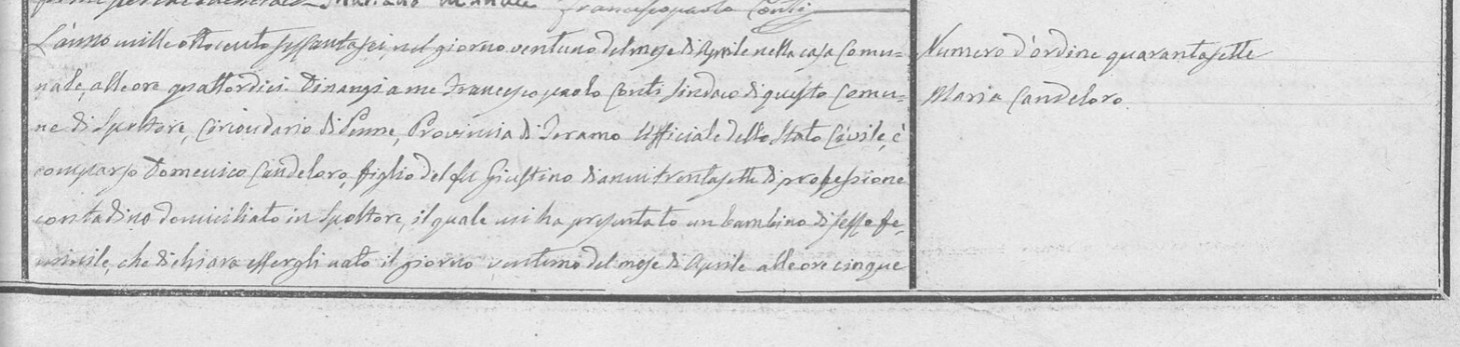 Mariano Francescopaolo Conti
L'anno mille ottocento sessantasei, nel giorno ventuno del mese di Aprile nella casa Comu=
nale, alle ore quattordici. Dinanzi a me Francescopaolo Conti Sindaco di questo Comu=
ne di Spoltore, Circondario di Penne, Provincia di Teramo Uffiziale dello Stato Civile, è
comparso Domenico Candeloro, figlio del fu Giustino di anni trentasette di professione
contadino domiciliato in Spoltore, il quale mi ha presentato un bambino di sesso fe=
minile, che dichiara essergli nato il giorno ventuno del mese di Aprile alle ore cinque
Numero d'ordine quarantasette
Maria Candeloro.